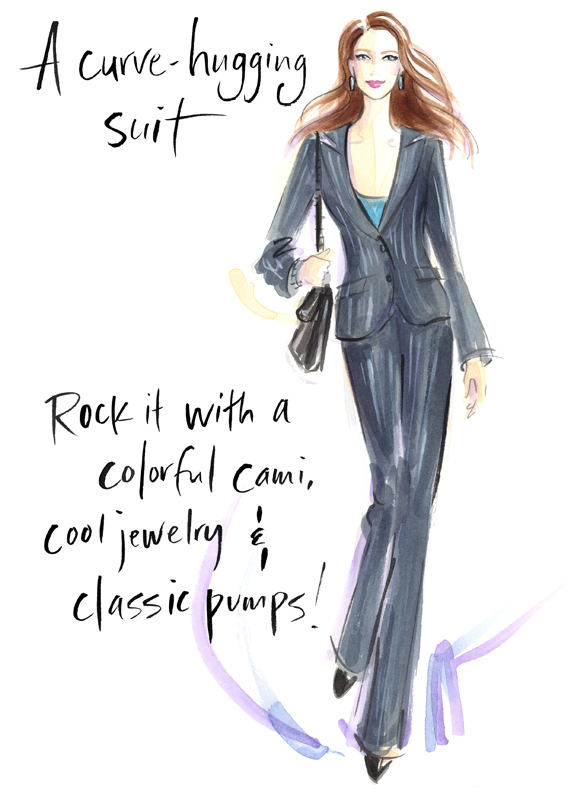 A curve-hugging
suit
Rock it with a
colorful cami,
cool jewelry &
classic pumps!